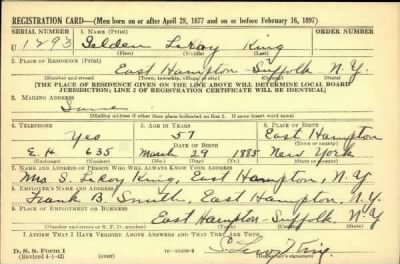 REGISTRATION CARD—(Men born on or after April 28, 1877 and on or before February 16, 1897)
SERIAL NUMBER 1. NAME (Print) ORDER NUMBER
U 1293 Selden LeRoy King
2. PLACE OF RESIDENCE (Print)
East Hampton Suffolk N.Y.
(Number and street) (Town, township, village, or city) (County) (State)
[THE PLACE OF RESIDENCE GIVEN ON THE LINE ABOVE WILL DETERMINE LOCAL BOARD
JURISDICTION; LINE 2 OF REGISTRATION CERTIFICATE WILL BE IDENTICAL]
3. MAILING ADDRESS
Same
(Mailing address if other than place indicated on line 2. If same insert word same)
4. TELEPHONE 5. AGE IN YEARS 6. PLACE OF BIRTH
Yes 57 East Hampton
DATE OF BIRTH (Town or county)
E.H. 635 March 29 1885 New York
(Exchange) (Number) (Mo.) (Day) (Yr.) (State or country)
7. NAME AND ADDRESS OF PERSON WHO WILL ALWAYS KNOW YOUR ADDRESS
Mrs. S. LeRoy King, East Hampton, N.Y.
8. EMPLOYER'S NAME AND ADDRESS
Frank B. Smith, East Hampton, N.Y.
9. PLACE OF EMPLOYMENT OR BUSINESS
East Hampton Suffolk N.Y.
(Number and street or R. F. D. number) (Town) (County) (State)
I AFFIRM THAT I HAVE VERIFIED ABOVE ANSWERS AND THAT THEY ARE TRUE.
D. S. S. Form 1
(Revised 4-1-42) (over) S. LeRoy King